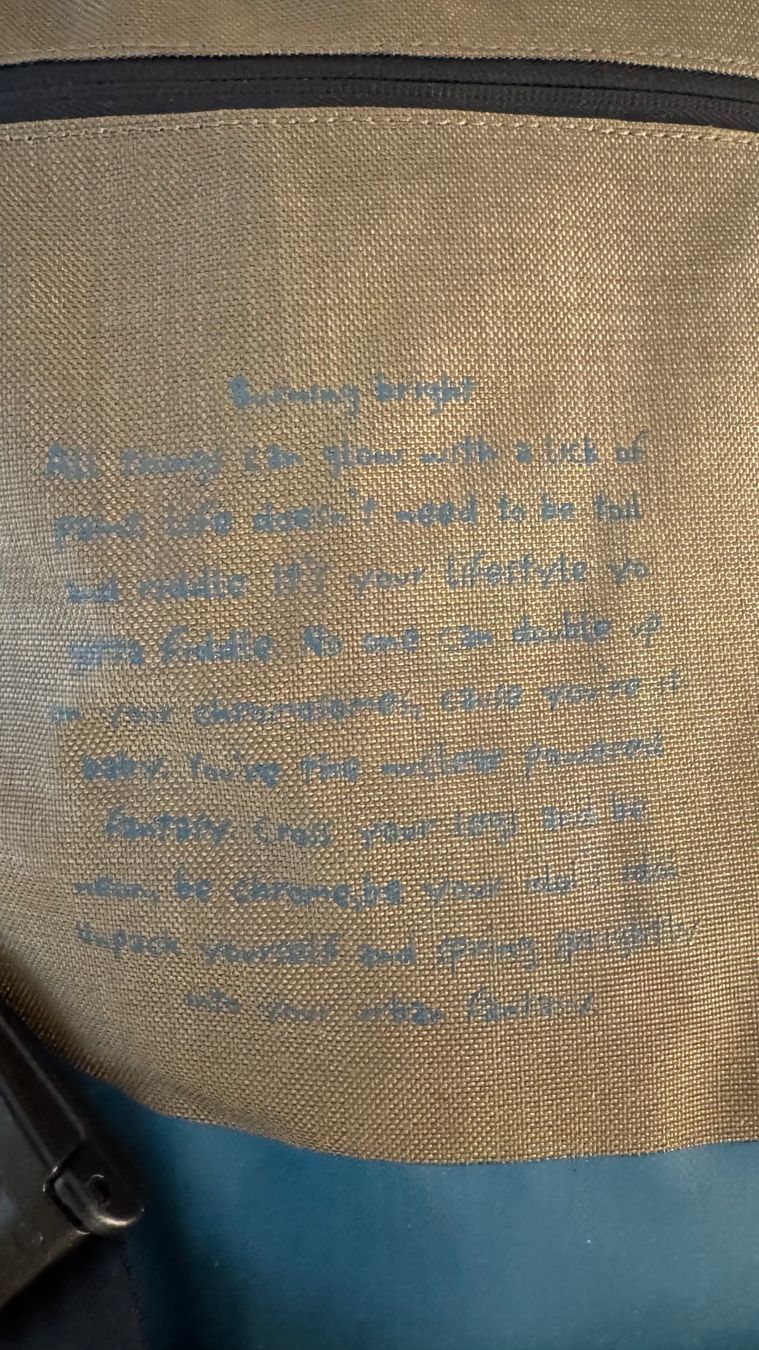 Burning bright
All things can glow with a lick of
paint Life doesn't need to be toil
and riddle It's your lifestyle yo
gotta fiddle No one can double up
on your chromosomes, cause you're it
baby. You're the nuclear powered
fantasy. Cross your legs and be
mean, be chrome, be your
Unpack yourself and spring sprightly
into your urban fantasy.